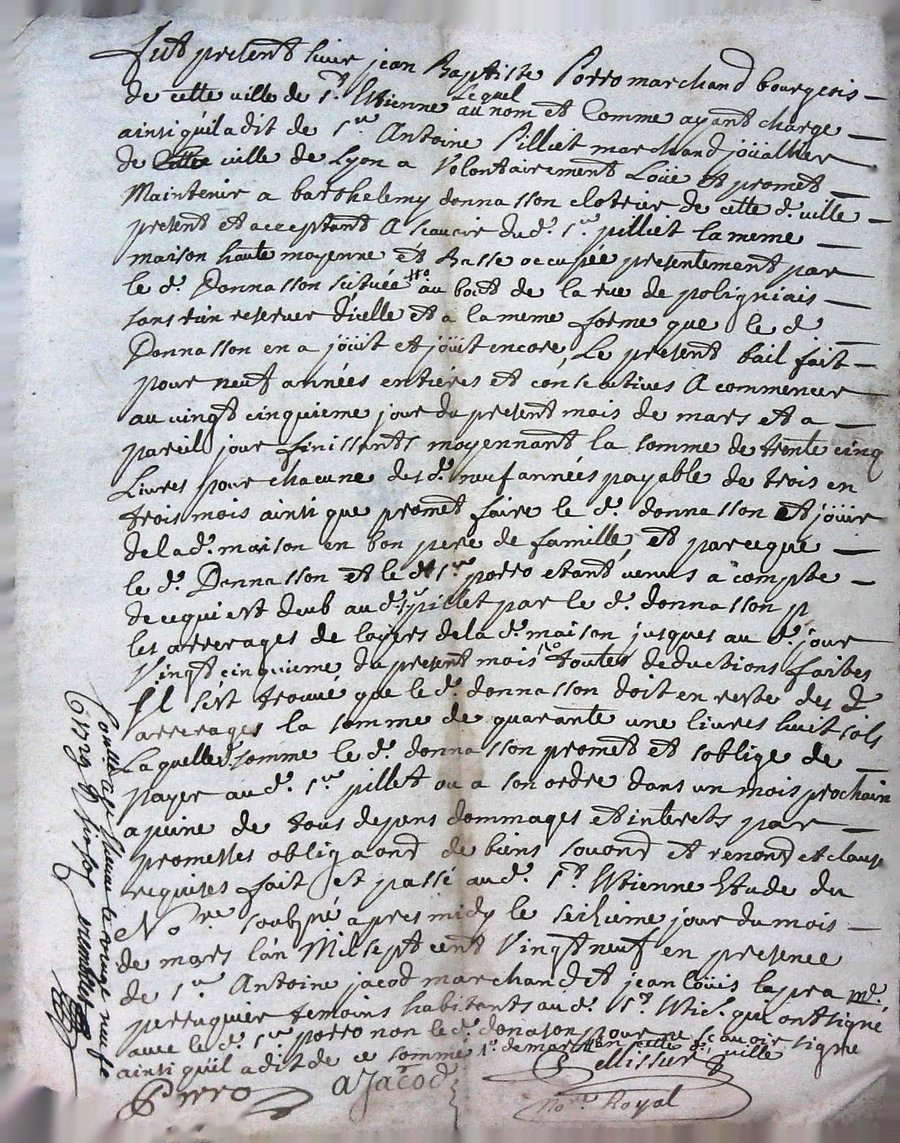 fut present sieur jean Baptiste Porro marchand bourgeois
de cette ville de St Etienne lequel au nom et Comme ayant charge
ainsi quil a dit de Sr Antoine Pilliet marchand jouallier
de cette ville de Lyon a Volontairement Loüé et promet
Maintenir a barthelemy donnasson clotrier de cette d. ville
present et acceptant A scavoir dud. Sr pilliet la meme
maison haute moyenne et Basse occupée presentement par
le d. Donnasson située au bout de la rue de poligniais
sans rien reserver dicelle et a la meme forme que le d
Donnasson en a joüit et joüit encore, Le present bail fait
pour neuf années entières et consecutives A commencer
au vingt cinquieme jour du present mois de mars et a
pareil jour finissants moyennant la somme de trente cinq
Livres pour chacune des d. neuf années payable de trois en
trois mois ainsi que promet faire le d. donnasson et joüir
de la d. maison en bon pere de famille, et parceque
le d. Donnasson et le d Sr porro etant venus a compte
de ce qui est deub au d. Sr pillet par le d. donnasson p
les arrerages de loyers de la d. maison jusques au d. jour
Vingt cinquieme du present mois toutes deductions faites
Il s'est trouvé que le d. donnasson doit en reste des d
arrerages la somme de quarante une livres huit sols
Laquelle somme le d. donnasson promet et soblige de
payer au d. Sr pillet ou a son ordre dans un mois prochain
a peine de tous depens dommages et interets par
promesses obligaond de biens souond et renond et clause
requises fait et passé au d. St Etienne Etude du
Nore soubné apres midy le seizieme jour du mois
de mars lan Mil sept cent Vingt neuf en presence
de Sr Antoine jacod marchand et jean Loüis lapra md.
perruquier temoins habitants au d. St Eti. qui ont signé
avec le d. Sr porro non le d. donason pour ne scavoir signe
ainsi quil a dit de ce sommé de mars en cette d. ville
Porro
aJacod
Tellissur
Nore Royal